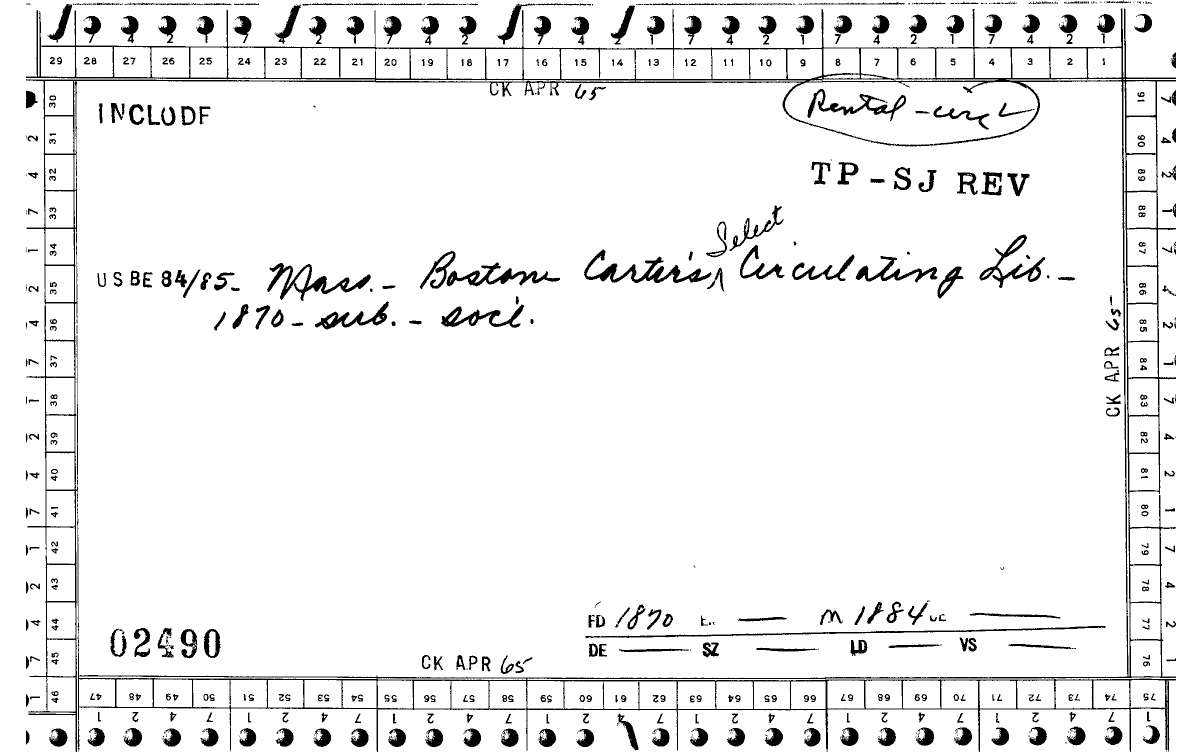 7 4 2 1 7 4 2 1 7 4 2 1 7 4 2 1 7 4 2 1 7 4 2 1 7 4 2 1
29 28 27 26 25 24 23 22 21 20 19 18 17 16 15 14 13 12 11 10 9 8 7 6 5 4 3 2 1
CK APR 65
INCLUDE
Rental - circ
TP-SJ REV
Select
USBE 84/85- Mass. - Boston Carter's ⋀ Circulating Lib. -
1870 - sub. - soc'l.
CK APR 65
FD 1870 — M 1884 —
02490
DE — SZ — LD — VS —
CK APR 65
30 31 32 33 34 35 36 37 38 39 40 41 42 43 44 45 46
91 90 89 88 87 86 85 84 83 82 81 80 79 78 77 76
47 48 49 50 51 52 53 54 55 56 57 58 59 60 61 62 63 64 65 66 67 68 69 70 71 72 73 74 75
1 2 4 7 1 2 4 7 1 2 4 7 1 2 4 7 1 2 4 7 1 2 4 7 1 2 4 7 1